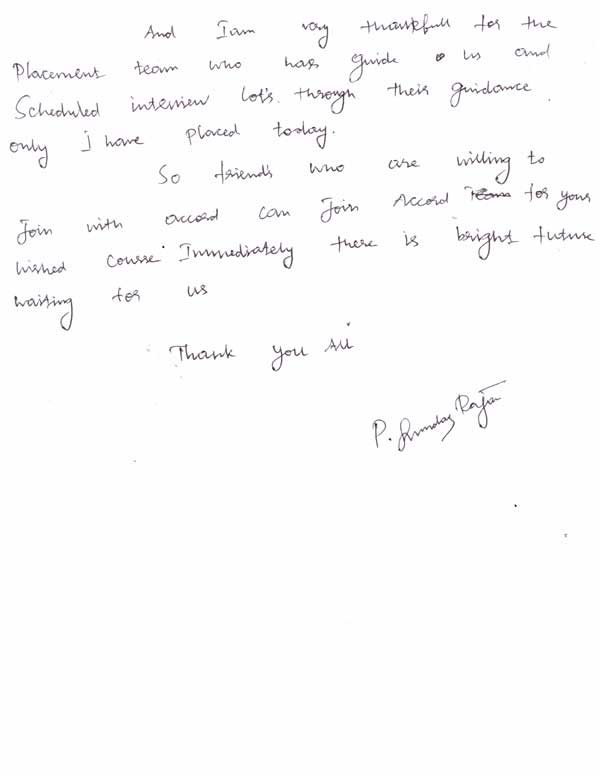 And I am very thankfull for the
Placement team who has guide us and
Scheduled interview lots. through their guidance
only I have placed today.
So friends who are willing to
Join with accord can Join Accord for your
wished course Immediately there is bright future
waiting for us
Thank you All
P. Sundar Rajan